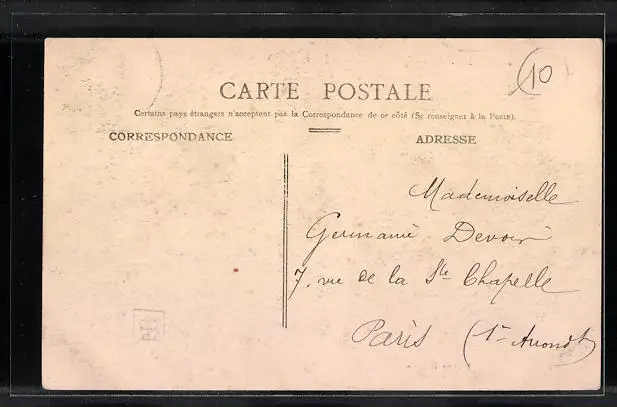 10
CARTE POSTALE
Certains pays étrangers n'acceptent pas la Correspondance de ce côté (Se renseigner à la Poste).
CORRESPONDANCE
ADRESSE
Mademoiselle
Germaine
7, rue de la Ste Chapelle
Paris (1er Arrondt)